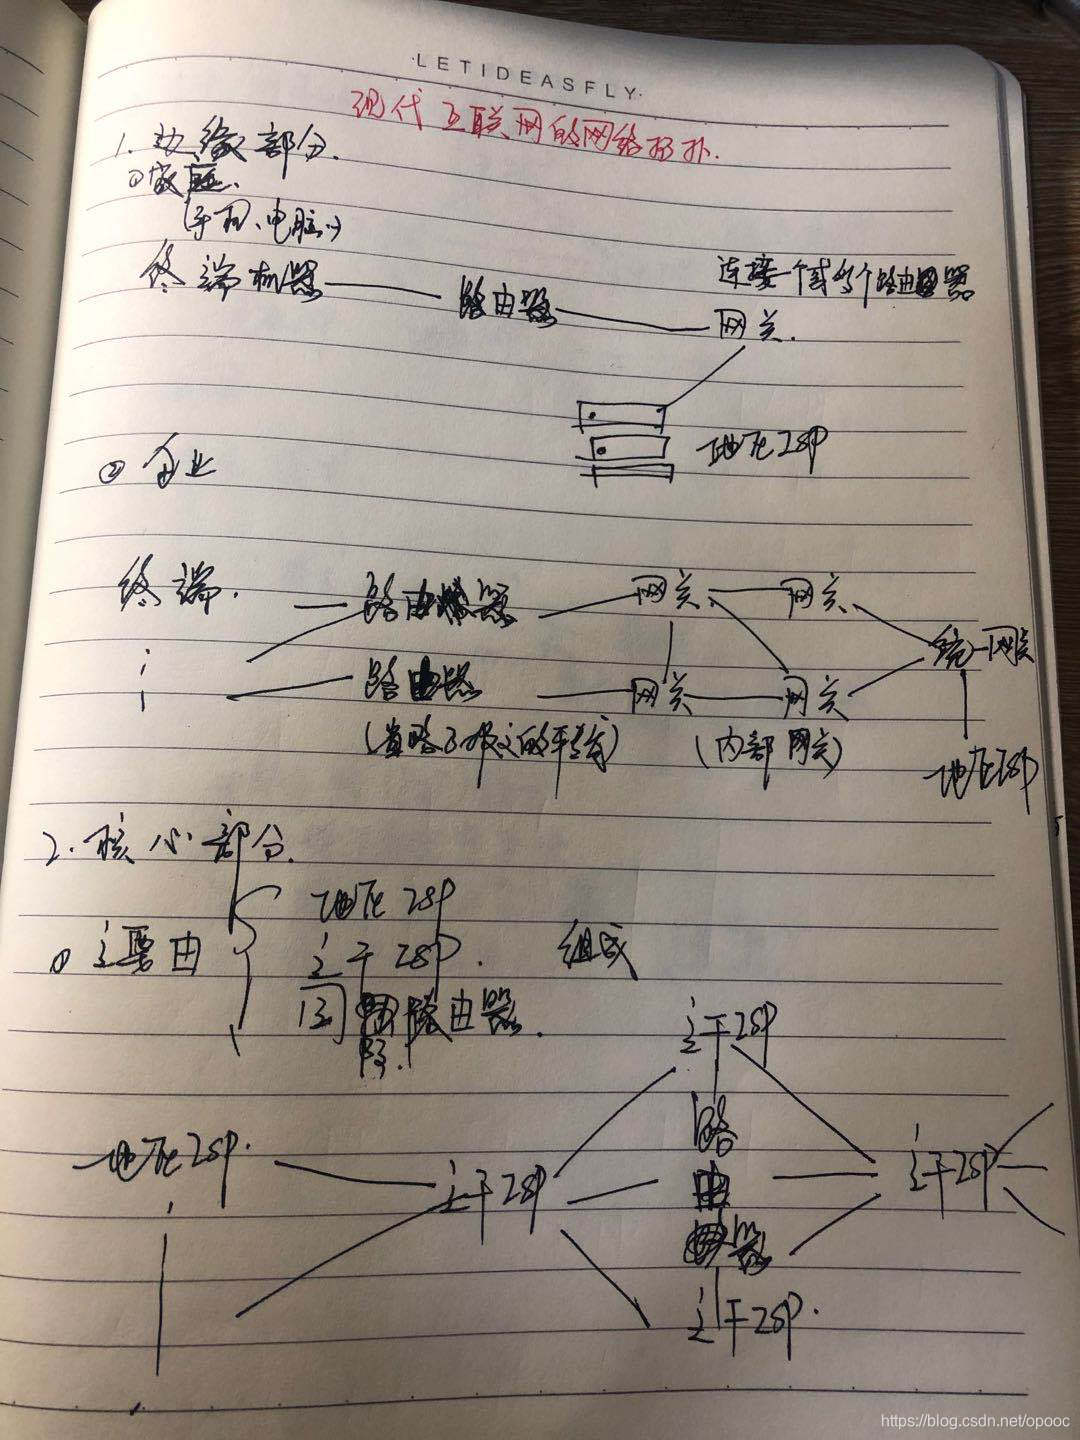 LETIDEASFLY
现代互联网的网络拓扑.
1. 边缘部分.
①家庭.
(手机、电脑..)
终端机器 路由器 网关.
连接一个或多个路由器
地区ISP
② 企业
终端. 路由器 网关 网关
统一网关
路由器 网关 网关
(省略了报文的平线) (内部网关)
地区ISP
2. 核心部分.
① 主要由 地区ISP
主干ISP. 组成
路由器.
主干ISP
地区ISP. 主干ISP 路由器 主干ISP
主干ISP.
https://blog.csdn.net/opooc